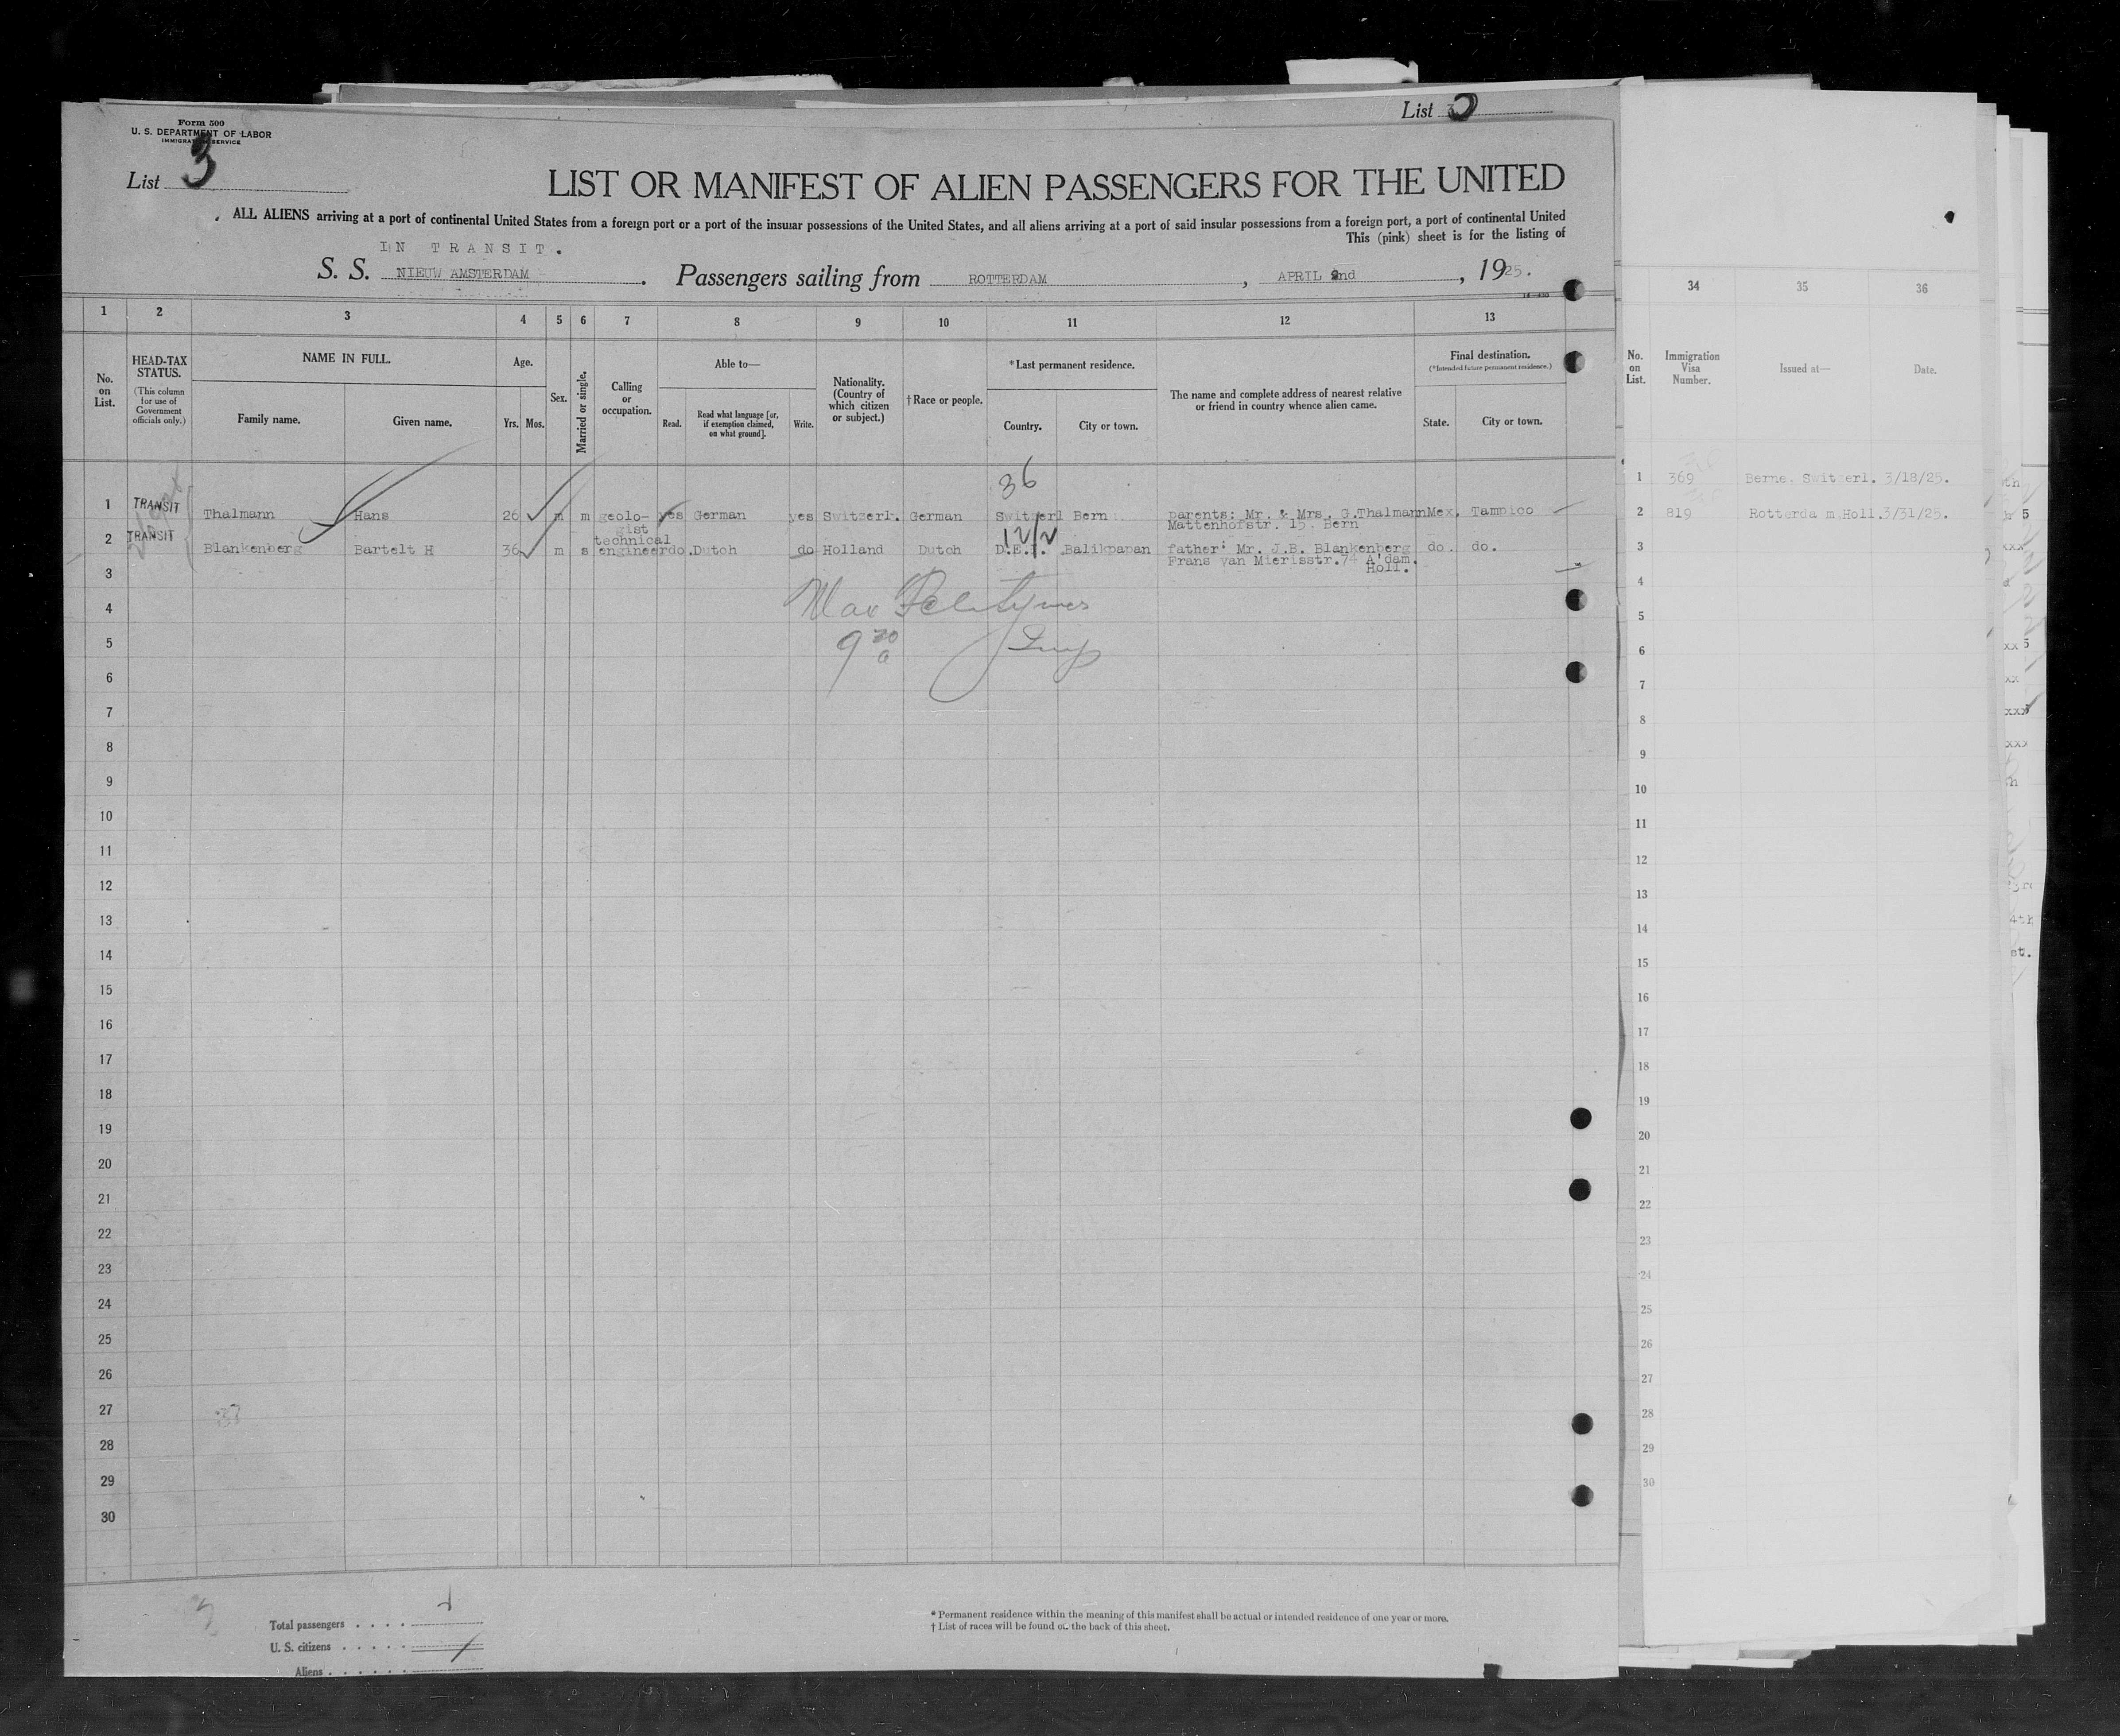 List 3
Form 500
U. S. DEPARTMENT OF LABOR
IMMIGRATION SERVICE
List 3
LIST OR MANIFEST OF ALIEN PASSENGERS FOR THE UNITED
ALL ALIENS arriving at a port of continental United States from a foreign port or a port of the insular possessions of the United States, and all aliens arriving at a port of said insular possessions from a foreign port, a port of continental United
This (pink) sheet is for the listing of
IN TRANSIT.
S. S. NIEUW AMSTERDAM. Passengers sailing from ROTTERDAM, APRIL 2nd, 1925.
1 2 3 4 5 6 7 8 9 10 11 12 13
34 35 36
No. on List.
HEAD-TAX STATUS.
(This column for use of Government officials only.)
NAME IN FULL.
Family name.
Given name.
Age.
Yrs. Mos.
Sex.
Married or single.
Calling or occupation.
Able to—
Read.
Read what language [or, if exemption claimed, on what ground].
Write.
Nationality. (Country of which citizen or subject.)
† Race or people.
* Last permanent residence.
Country.
City or town.
The name and complete address of nearest relative or friend in country whence alien came.
Final destination.
(* Intended future permanent residence.)
State.
City or town.
No. on List.
Immigration Visa Number.
Issued at—
Date.
36
1 TRANSIT Thalmann Hans 26 m m geolo-gist yes German yes Switzerl. German Switzerl Bern parents: Mr. & Mrs. G.Thalmann Mex. Tampico
Mattenhofstr. 15. Bern
12/2
2 TRANSIT Blankenberg Bartelt H 36 m s technical engineer do. Dutch do Holland Dutch D.E.I. Balikpapan father: Mr. J.B. Blankenberg do. do.
Frans van Mierisstr.74 A'dam.
Holl.
1 369 Berne, Switzerl. 3/18/25.
2 819 Rotterda m.Holl. 3/31/25.
3
4
5
6
7
8
9
10
11
12
13
14
15
16
17
18
19
20
21
22
23
24
25
26
27
28
29
30
Max
9 30 a
Insp
3
4
5
6
7
8
9
10
11
12
13
14
15
16
17
18
19
20
21
22
23
24
25
26
27
28
29
30
Total passengers
U. S. citizens
Aliens
* Permanent residence within the meaning of this manifest shall be actual or intended residence of one year or more.
† List of races will be found on the back of this sheet.